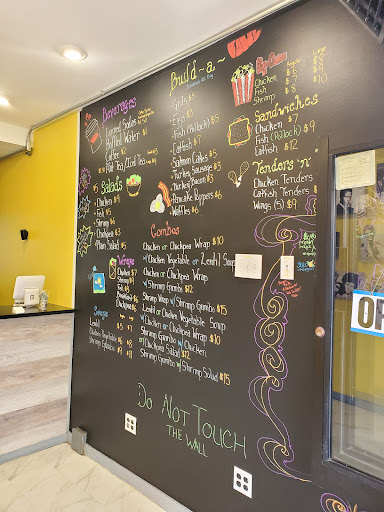 Beverages
Canned Sodas
Bottled Water $1
Coffee $2
Hot Tea/Iced Tea
Salads
Chicken $5
Fish
Shrimp $6
Chickpea $3
Plain Salad
Wraps
Chicken $7
Shrimp
Fish
Breakfast $6
Chickpea $6
Soups
Lentil $5 $7
Chicken Vegetable $6 $8
Shrimp Gumbo $9 $11
Build-a-
Breakfast All Day
Grits $4
Eggs $3
Fish (Pollock) $5
Catfish $7
Salmon Cakes $5
Turkey Sausage $3
Turkey Bacon $3
Pancake Poppers $6
Waffles $6
Combos
Chicken or Chickpea Wrap $10
w/ Chicken Vegetable or Lentil Soup
Chicken or Chickpea Wrap
w/ Shrimp Gumbo $12
Shrimp Wrap w/ Shrimp Gumbo $15
Lentil or Chicken Vegetable Soup
w/ Chicken or Chickpea Wrap $10
Shrimp Gumbo w/ Chicken
or Chickpea Salad $12
Shrimp Gumbo w/ Shrimp Salad $15
Do Not Touch
The Wall
Regular Large
Chicken $5 $8
Fish $6
Shrimp $8 $10
Sandwiches
Chicken $7
Fish (Pollock) $9
Catfish $12
Tenders 'n'
Chicken Tenders
Catfish Tenders
Wings (5) $9
OP